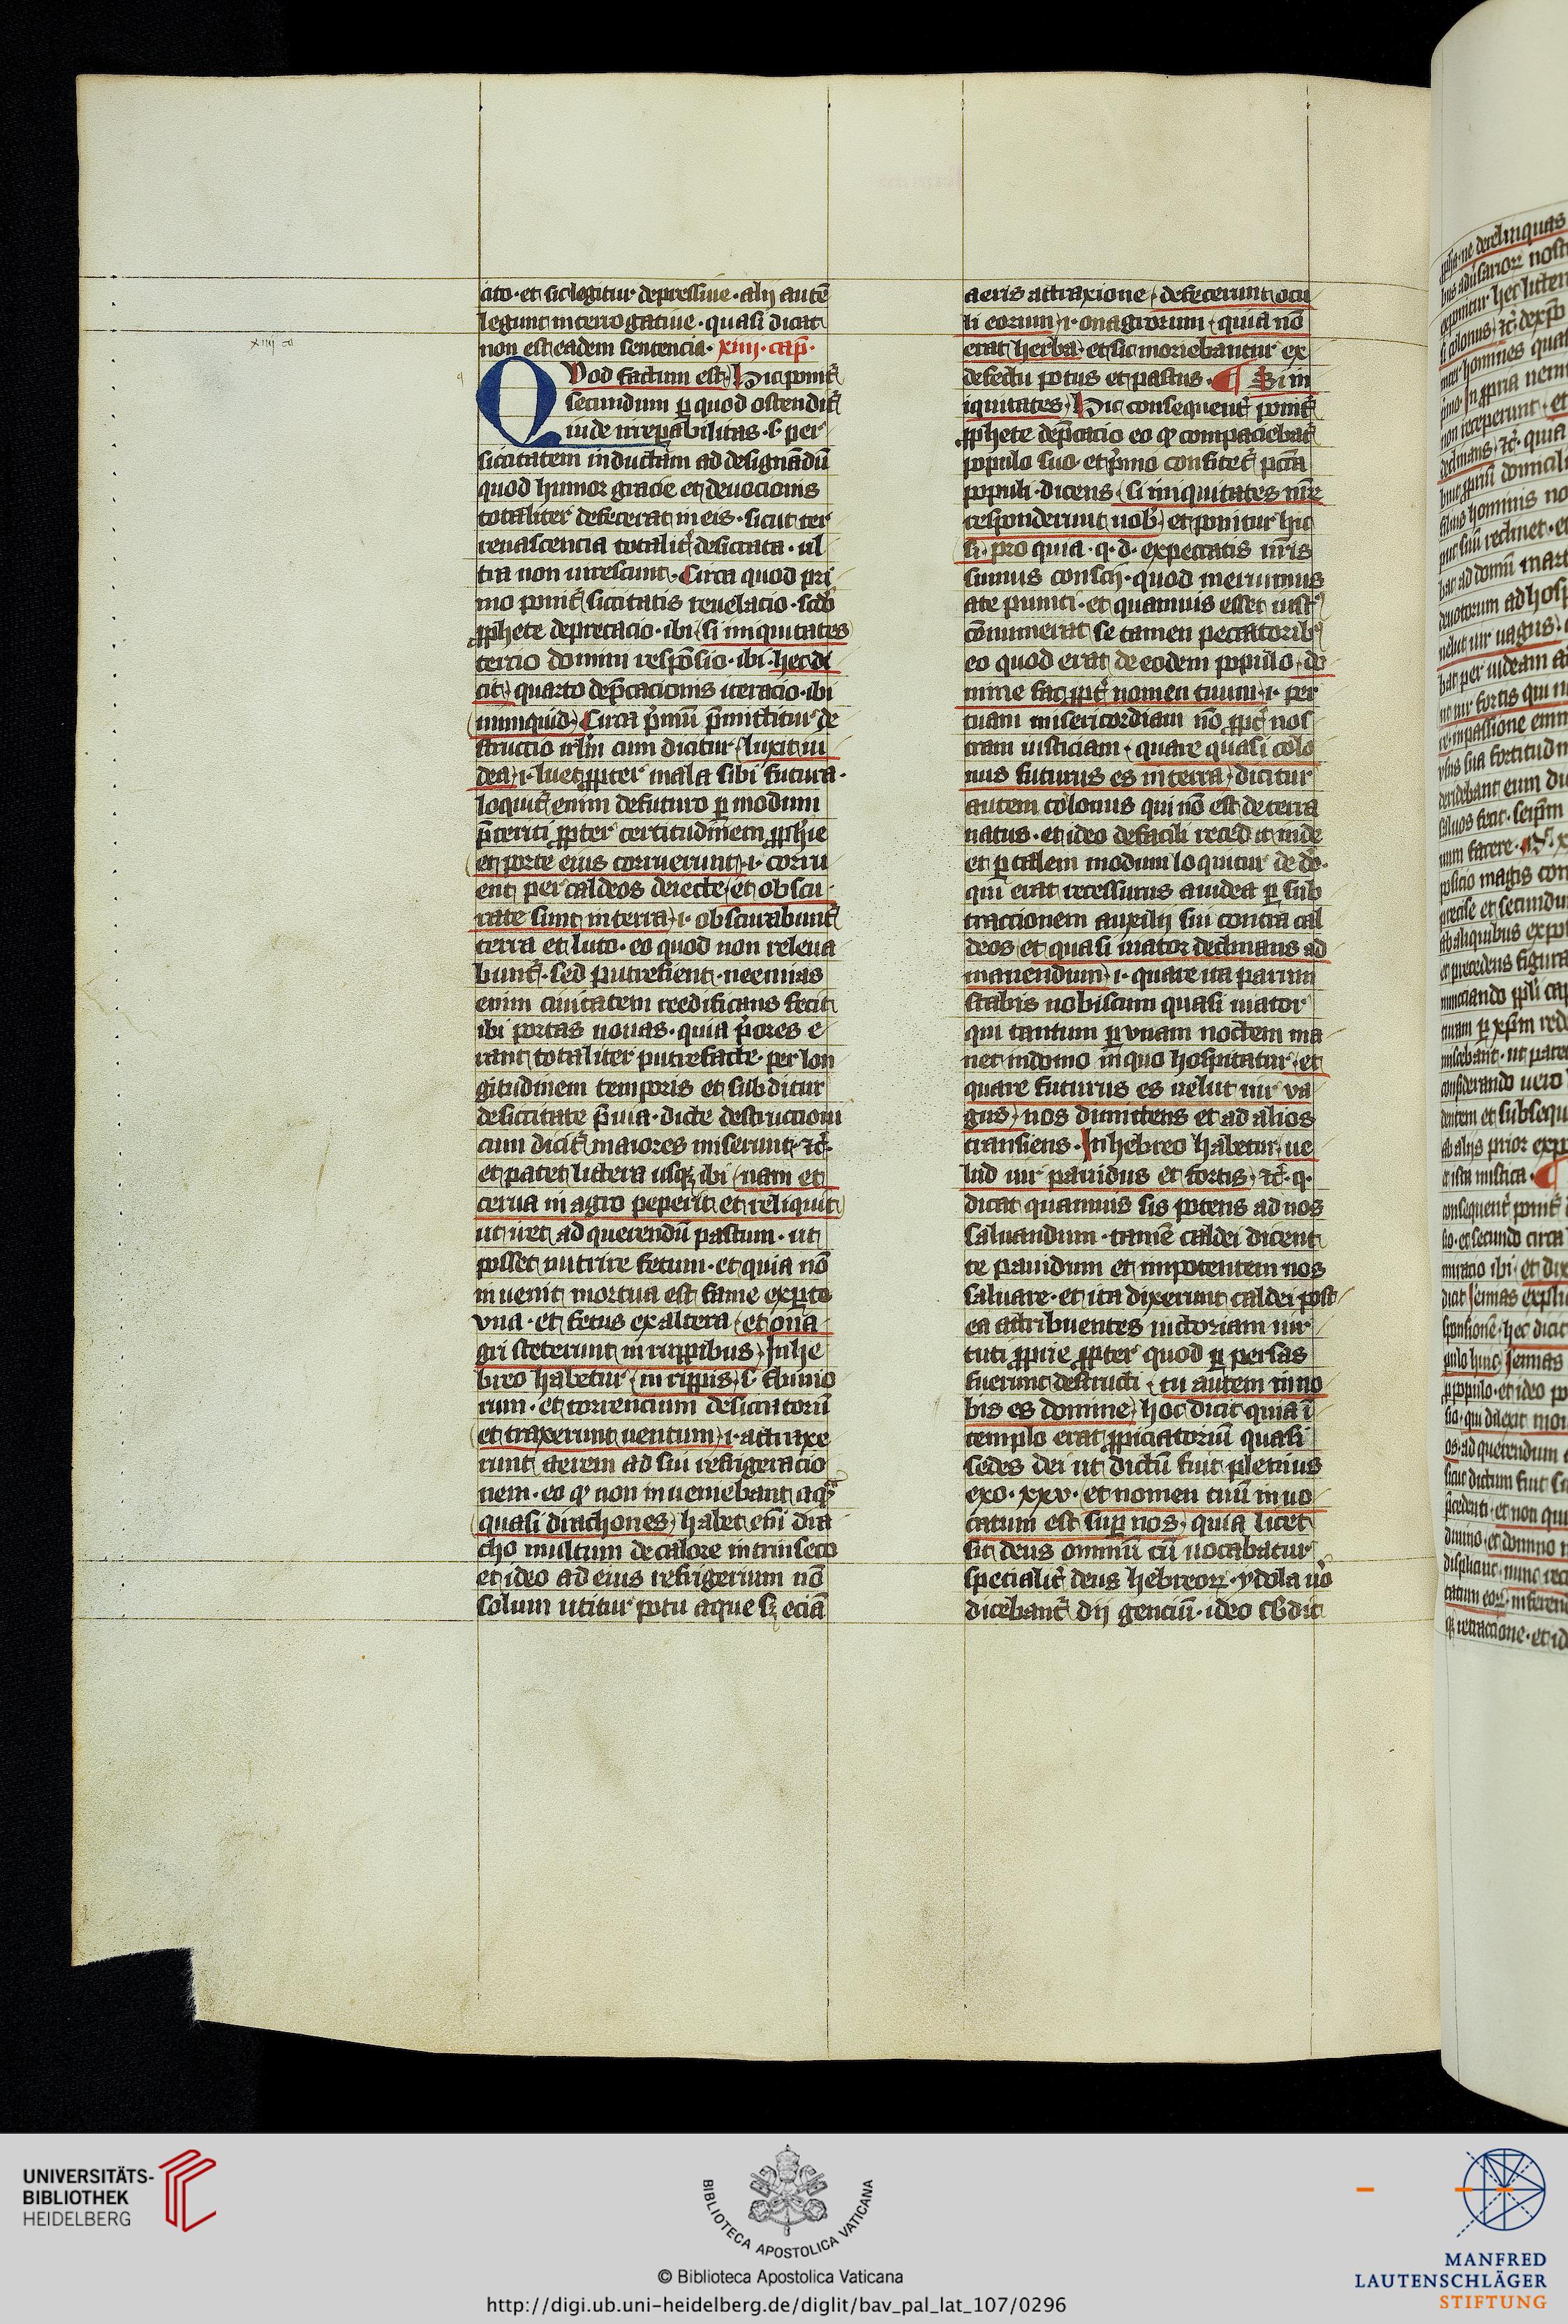 cito · et sic legitur depressiue · alij autē
legunt interrogatiue · quasi dicat
non est eadem sentencia · xiiii · cap̄ ·
xiiij ca
QVod factum est Hic ponit᷑
secundum ꝑ quod ostendit᷑
iude irreꝑabilitas · s · per
siccitatem inductam ad designādū
quod humor gracie et deuocionis
totaliter defecerat in eis · sicut ter
renascencia totalit᷑ desiccata · ul
tra non uirescunt · Circa quod pri
mo ponit᷑ siccitatis reuelacio · scd̄o
ꝓphete deprecacio · ibi si iniquitates
tercio domini respōsio · ibi · hec di
cit quarto dep̄cacionis iteracio · ibi
numquid Circa p̄mū p̄mittitur de
structio irl̄m cum dicitur luxit iu
dea · i · luet ꝓpter mala sibi futura ·
loquit᷑ enim de futuro ꝑ modum
p̄teriti ꝓpter certitudinem ꝓph̄ie
et porte eius corruerunt · i · corru
ent per caldeos deiecte et obscu
rate sunt in terra · i · obscurabunt᷑
terra et luto · eo quod non releua
bunt᷑ · sed putrefient · neemias
enim ciuitatem reedificans fecit
ibi portas nouas · quia p̄ores e
rant totaliter putrefacte · per lon
gitudinem temporis et subditur
de siccitate p̄uia · dicte destructioni
cum dicit᷑ maiores miserunt · ⁊c̄ ·
et patet littera usqꝫ ibi nam et
cerua in agro peperit et reliquit
ut iret ad querendū pastum · ut
posset nutrire fetum · et quia nō
inuenit mortua est fame ex ꝑte
vna · et fetus ex altera et ona
gri steterunt in ruppibus In he
breo habetur in rippis · s · fluuio
rum · et torrencium desiccatorū
et traxerunt uentum · i · attraxe
runt aerem ad sui refrigeracio
nem · eo qꝫ non inueniebant aquā
quasi drachones habet em̄ dra
cho multum de calore intrinseco
et ideo ad eius refrigerium nō
solum utitur potu aque sꝫ eciā
aeris attraxione · defecerunt ocu
li eorum · i · onagrorum quia nō
erat herba · et sic moriebantur ex
defectu potus et pastus · ¶ Si in
iquitates Hic consequent᷑ ponit᷑
ꝓphete dep̄cacio eo qꝫ compaciebat᷑
populo suo · et p̄mo confitet᷑ pctā
populi · dicens · si iniquitates nr̄e
responderunt nob̄ et ponitur hic
si · pro quia · q · d · expectatis nr̄is
sumus conscij · quod meruimus
a te puniri · et quamuis esset iust᷒
cōnumerat se tamen peccatorib᷒
eo quod erat de eodem populo do
mine fac ꝓpt᷑ nomen tuum · i · per
tuam misericordiam nō ꝓpt᷑ nos
tram iusticiam · quare quasi colo
nus futurus es in terra dicitur
autem colonus qui nō est de terra
natus · et ideo de facili recedit inde
et ꝑ talem modum loquitur de deo ·
qui erat recessurus a iudea ꝑ sub
traccionem auxilij sui contra cal
deos et quasi uiator declinans ad
manendum · i · quare ita parum
stabis nobiscum quasi uiator
qui tantum ꝑ vnam noctem ma
net in domo in quo hospitatur · et
quare futurus es uelut uir va
gus nos dimittens et ad alios
transiens · In hebreo habetur ue
lud uir pauidus et fortis · ⁊c̄ · q ·
dicat quamuis sis potens ad nos
saluandum · tamē caldei dicent
te pauidum et impotentem nos
saluare · et ita dixerunt caldei post
ea attribuentes uictoriam uir
tuti ꝓprie ꝓpter quod ꝑ persas
fuerunt destructi · tu autem in no
bis es domine hoc dicit quia ī
templo erat ꝓpiciatoriū quasi
sedes dei ut dictū fuit plenius
exo · xxv · et nomen tuū inuo
catum est suꝑ nos · quia licet
sit deus omniū tū uocabatur
specialit᷑ deus hebreoꝝ · ydola uō
dicebant᷑ dij genciū · ideo sb̄dit
UNIVERSITÄTS-
BIBLIOTHEK
HEIDELBERG
BIBLIOTECA APOSTOLICA VATICANA
© Biblioteca Apostolica Vaticana
http://digi.ub.uni-heidelberg.de/diglit/bav_pal_lat_107/0296
MANFRED
LAUTENSCHLÄGER
STIFTUNG